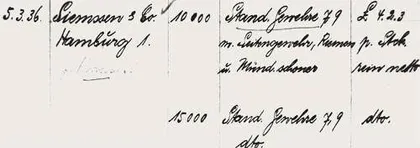 5.3.36. Siemssen & Co. 10000 Stand. Gewehre 7,9 £ 4.2.3
Hamburg 1. m. Seitengewehr, Riemen p. Stck
u. Mündschoner rein netto
15000 Stand. Gewehre 7,9 dto.
dto.